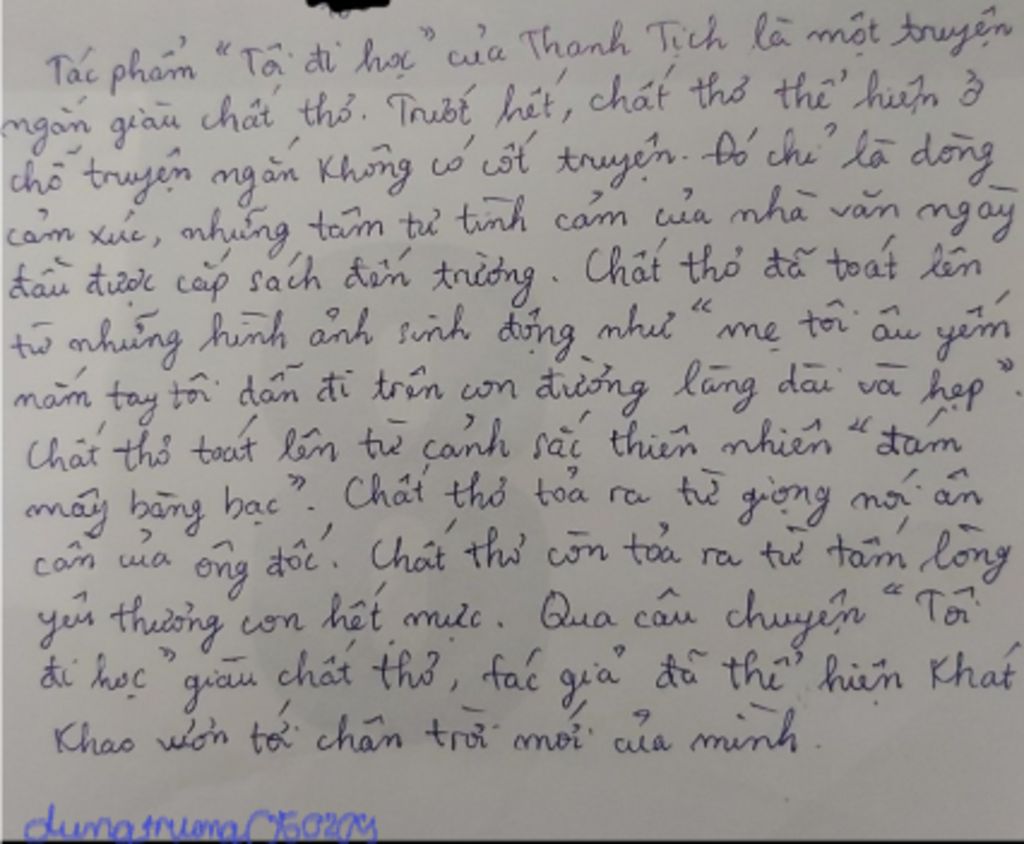 Tác phẩm "Tôi đi học" của Thanh Tịch là một truyện
ngắn giàu chất thơ. Trước hết, chất thơ thể hiện ở
chỗ truyện ngắn không có cốt truyện. Đó chỉ là dòng
cảm xúc, những tâm tư tình cảm của nhà văn ngày
đầu được cắp sách đến trường. Chất thơ đã toát lên
từ những hình ảnh sinh động như "mẹ tôi âu yếm
nắm tay tôi dẫn đi trên con đường làng dài và hẹp".
Chất thơ toát lên từ cảnh sắc thiên nhiên "đám
mây bàng bạc". Chất thơ toả ra từ giọng nói ân
cần của ông đốc. Chất thơ còn tỏa ra từ tấm lòng
yêu thương con hết mực. Qua câu chuyện "Tôi
đi học" giàu chất thơ, tác giả đã thể hiện khát
khao vươn tới chân trời mới của mình.